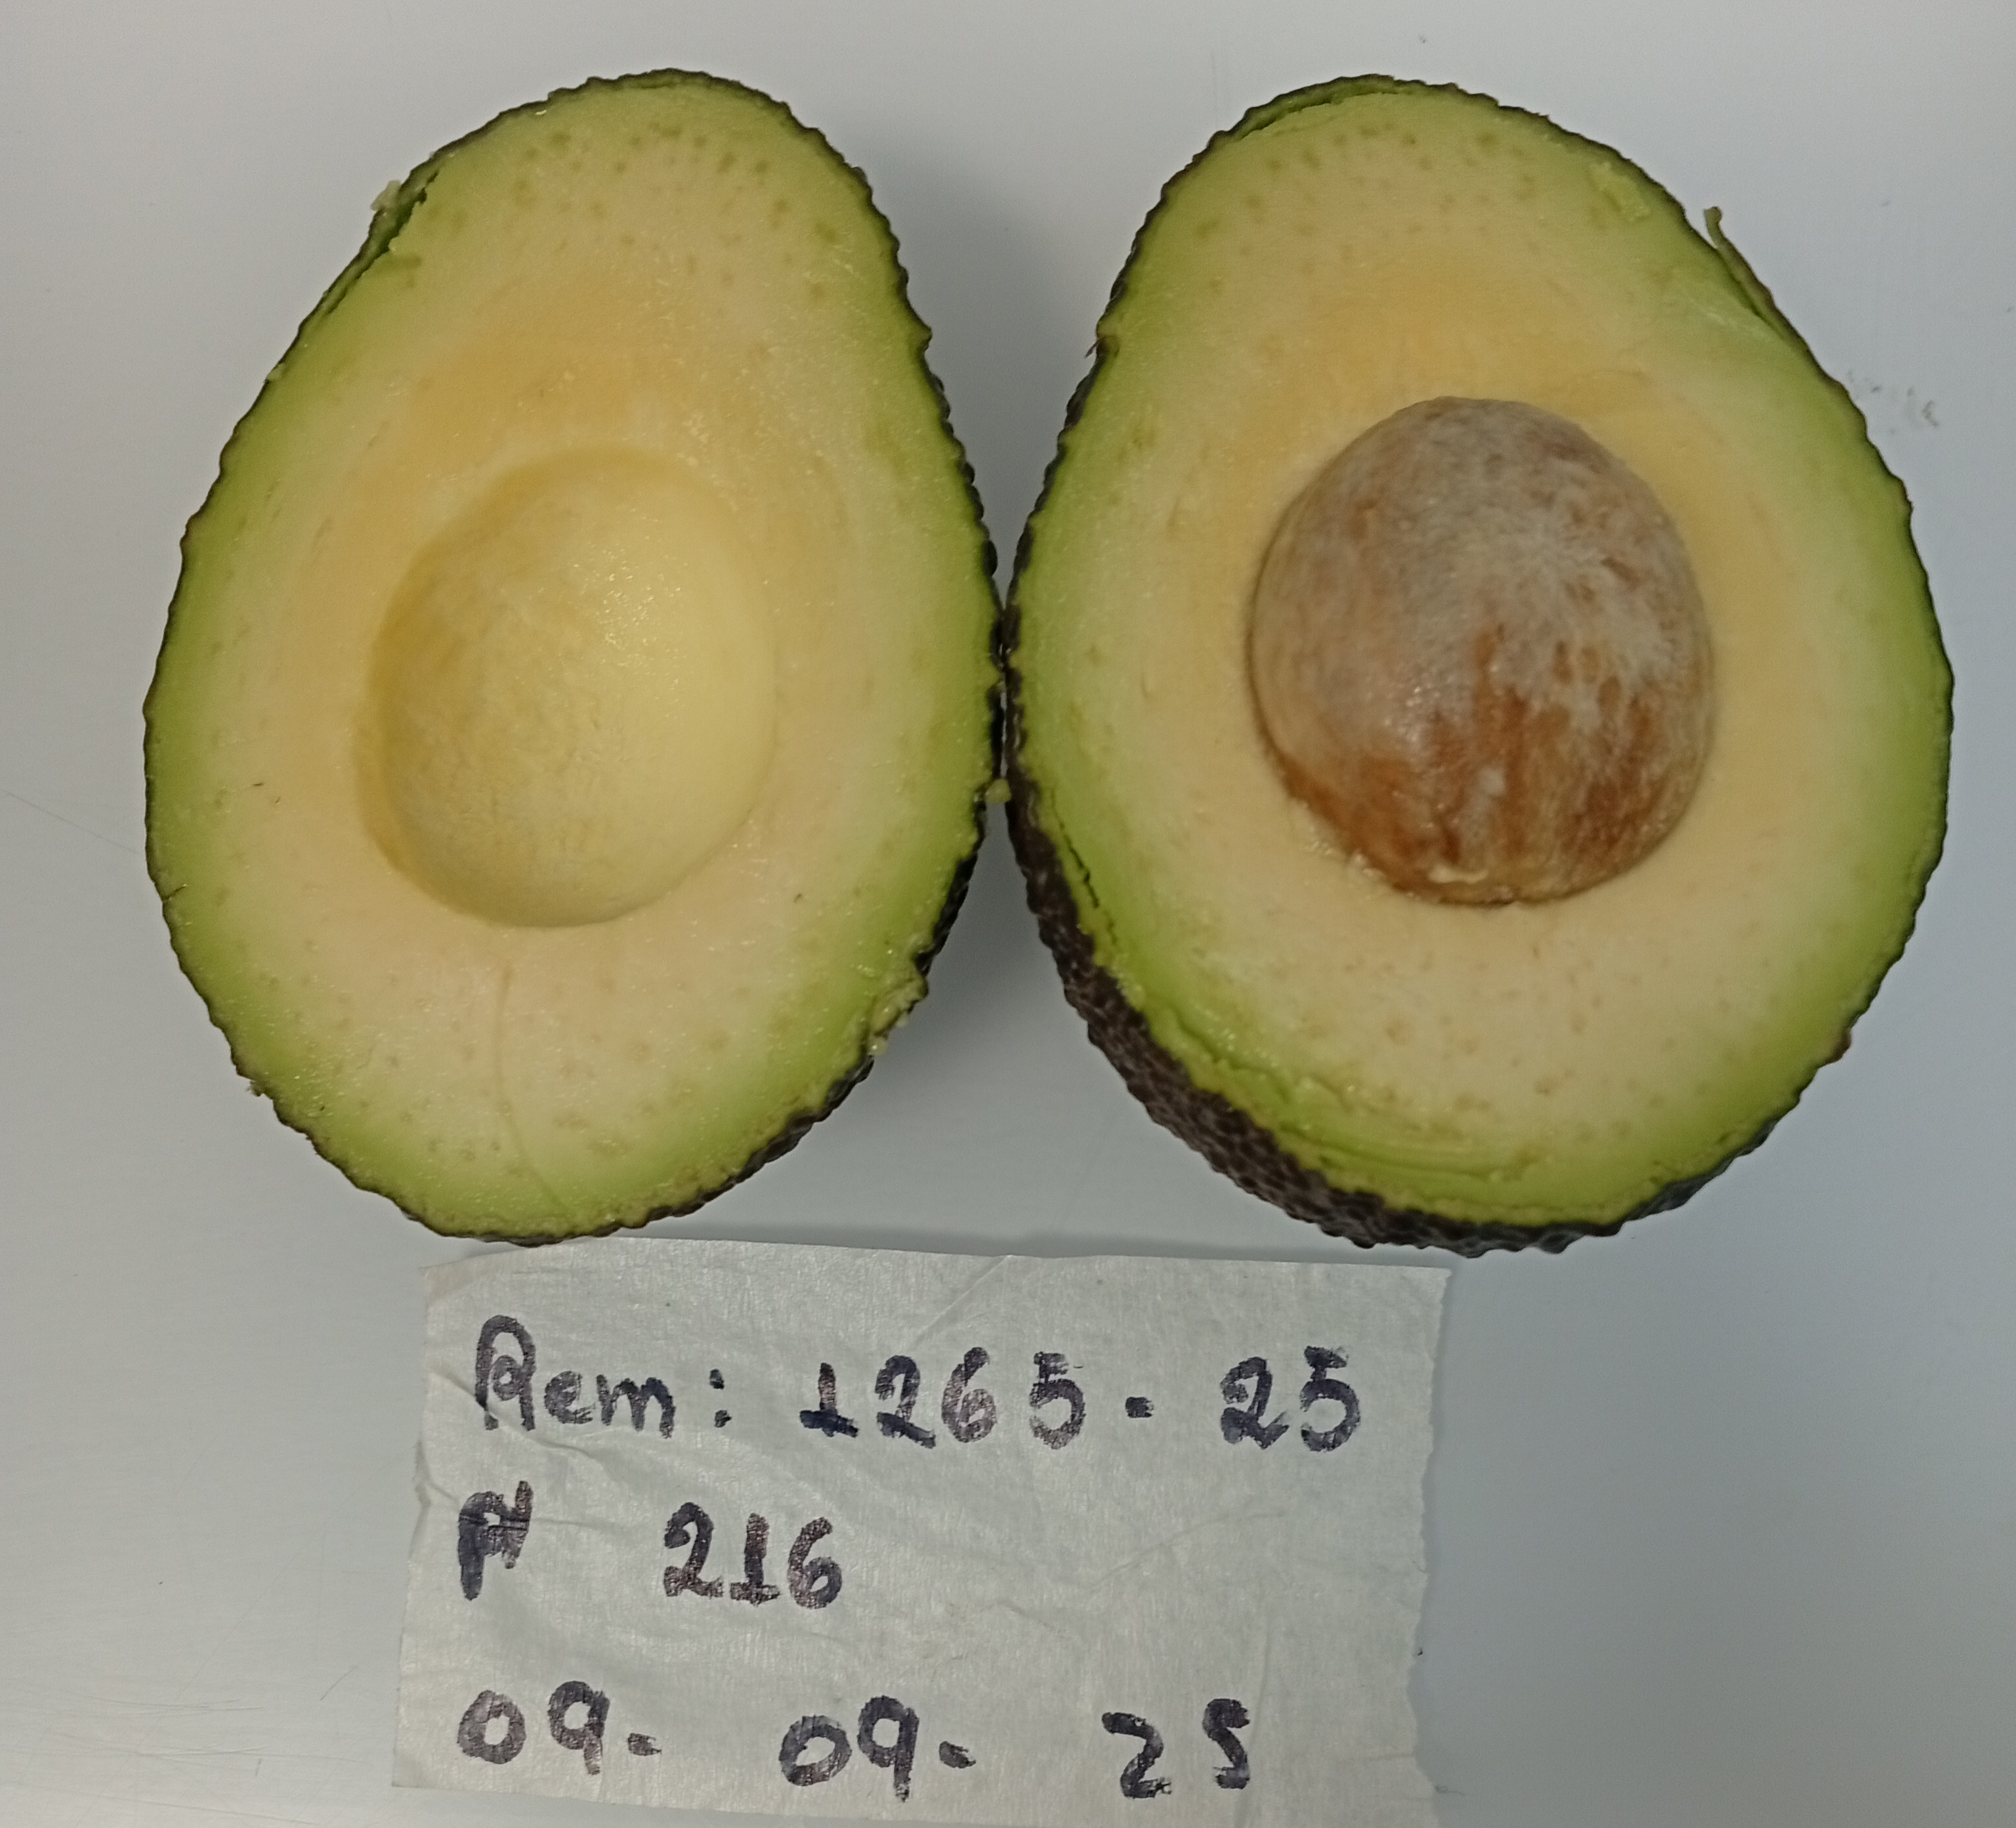 Rem: 1265. 25
216
09. 09. 25